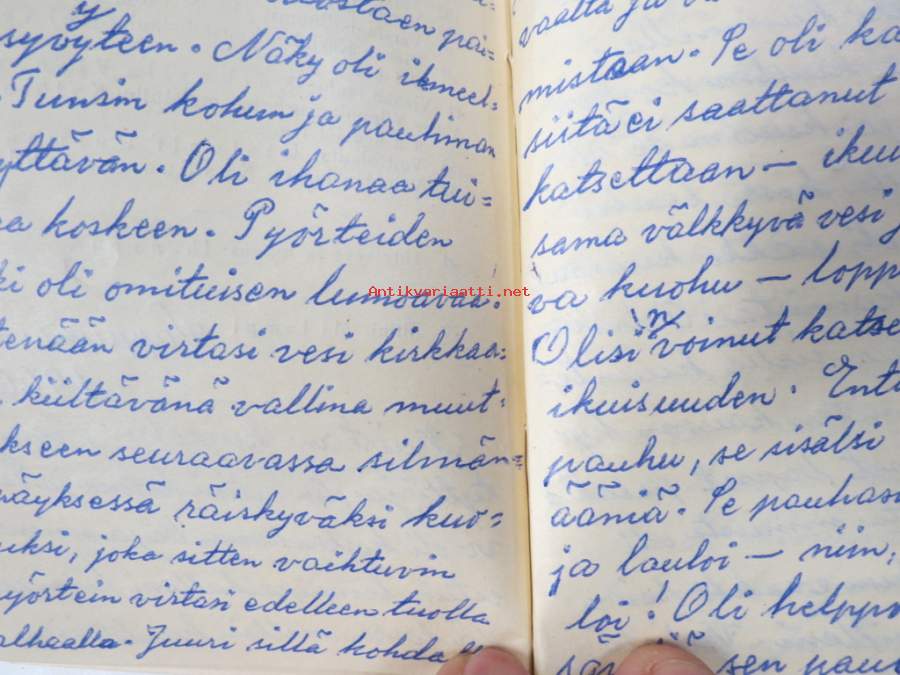 syvyyteen. Näky oli ihmeel=
Tunsin kohun ja pauhinan
yttävän. Oli ihanaa tui=
a koskeen. Pyörteiden
ki oli omituisen lumoavaa!
tenään virtasi vesi kirkkaa=
kiiltävänä vallina muut=
kseen seuraavassa silmän=
äyksessä räiskyväksi kuo=
uksi, joka sitten vaihtuvin
yörtein virtasi edelleen tuolla
alhaalla. Juuri sillä kohdal
vaalta ja
mistaan. Se oli ka
siitä ei saattanut
katsettaan – ikuu
sama välkkyvä vesi j
va kuohu – lopp
Olisin voinut katse
ikuisuuden. Entä
pauhu, se sisälsi
ääniä. Se pauhasi
ja lauloi – niin,
loi! Oli helppo
sen pau
Antikvariaatti.net